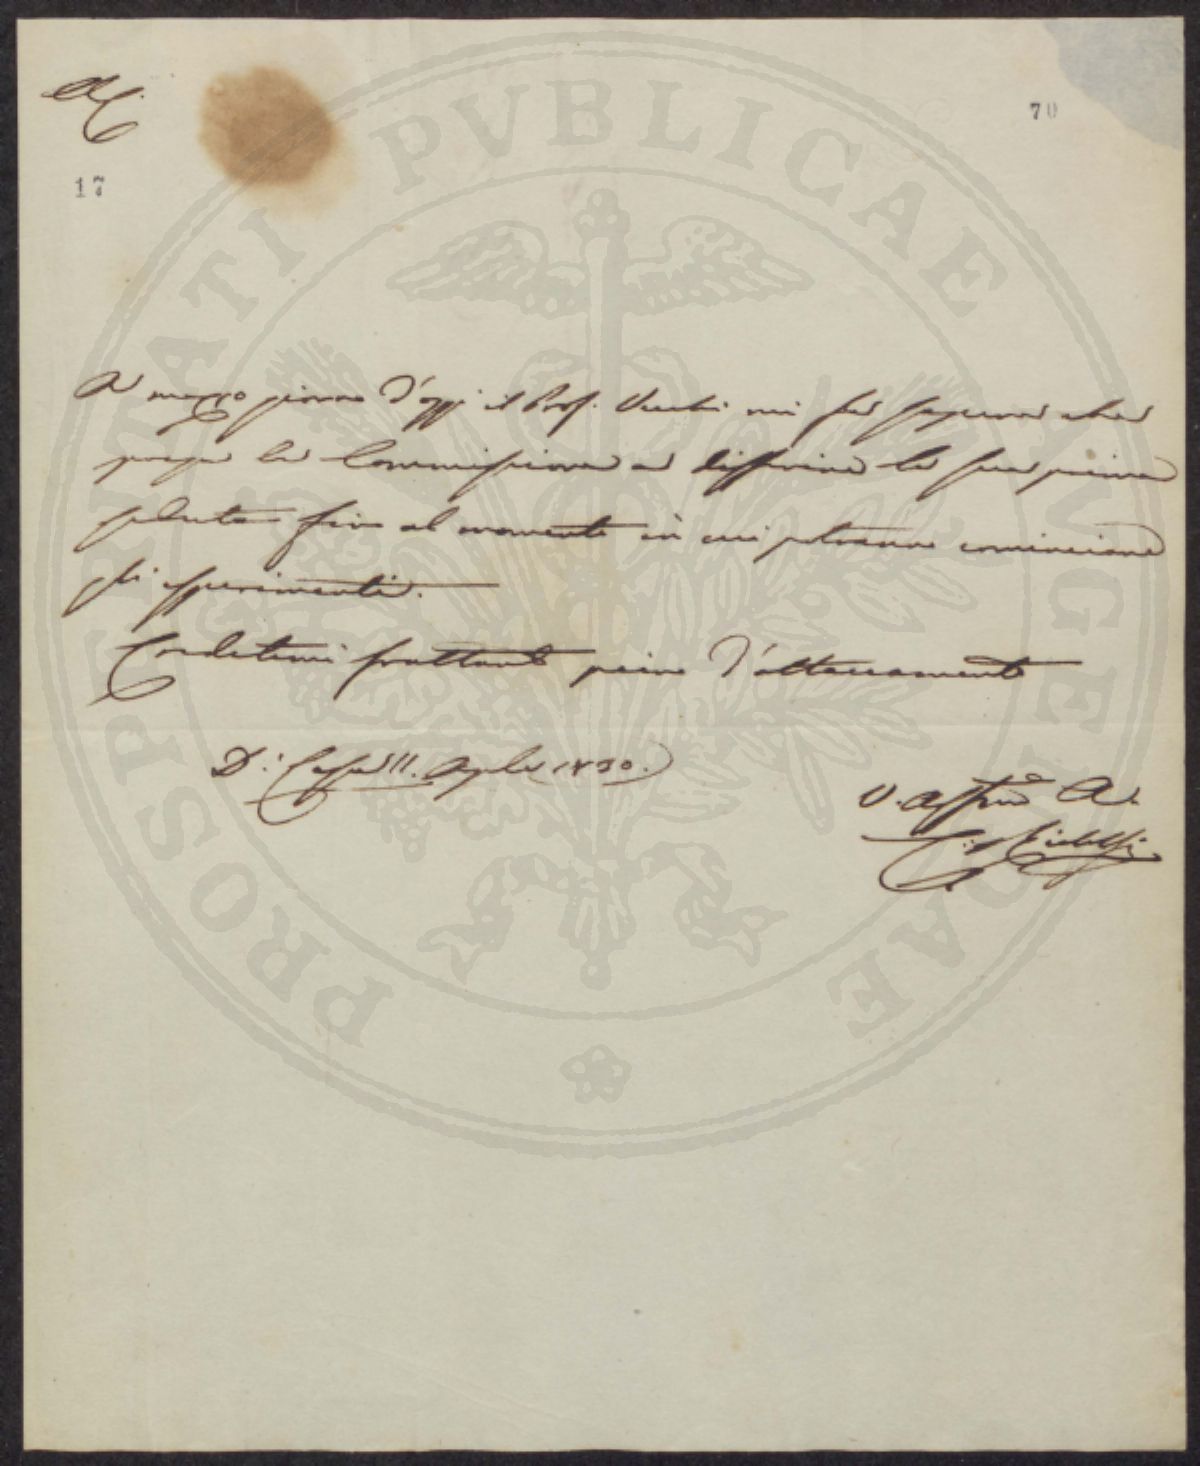 AC.
70
17
A mezzo giorno d'oggi il Prof. mi fa sapere che
prega la Commissione a differire la sua prima
seduta fino al momento in cui potranno cominciare
gli esperimenti.
Credetemi frattanto pieno d'attaccamento
Di Casa 11. Aprile 1830.
V. affmo A.
PROSPERITATI PVBLICAE AVGENDAE